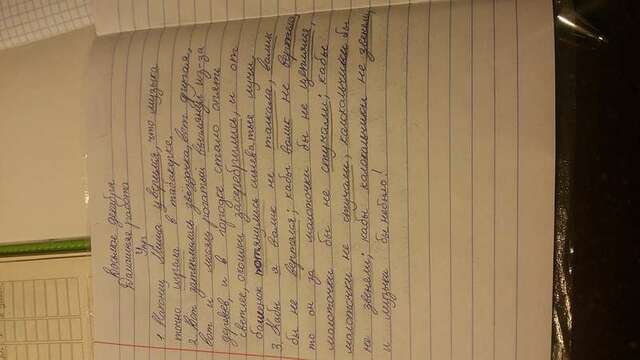 Восьмое декабря
Домашняя работа
Упр
1. Наконец Миша уверился, что музыка
точно играла в табакерке.
2. Вот затеплилась звёздочка, вот другая,
вот и месяц рогатый выглянул из-за
деревьев, и в городке стало опять
светлее, окошки засеребрились, и от
башенок потянулись синеватые лучи.
3. Кабы я валик не толкала, валик
бы не вертелся; кабы валик не вертелся,
то он за молоточки бы не цеплялся,
молоточки бы не стучали; кабы
молоточки не стучали, колокольчики бы
не звенели; кабы колокольчики не звенели,
и музыки бы небыло!